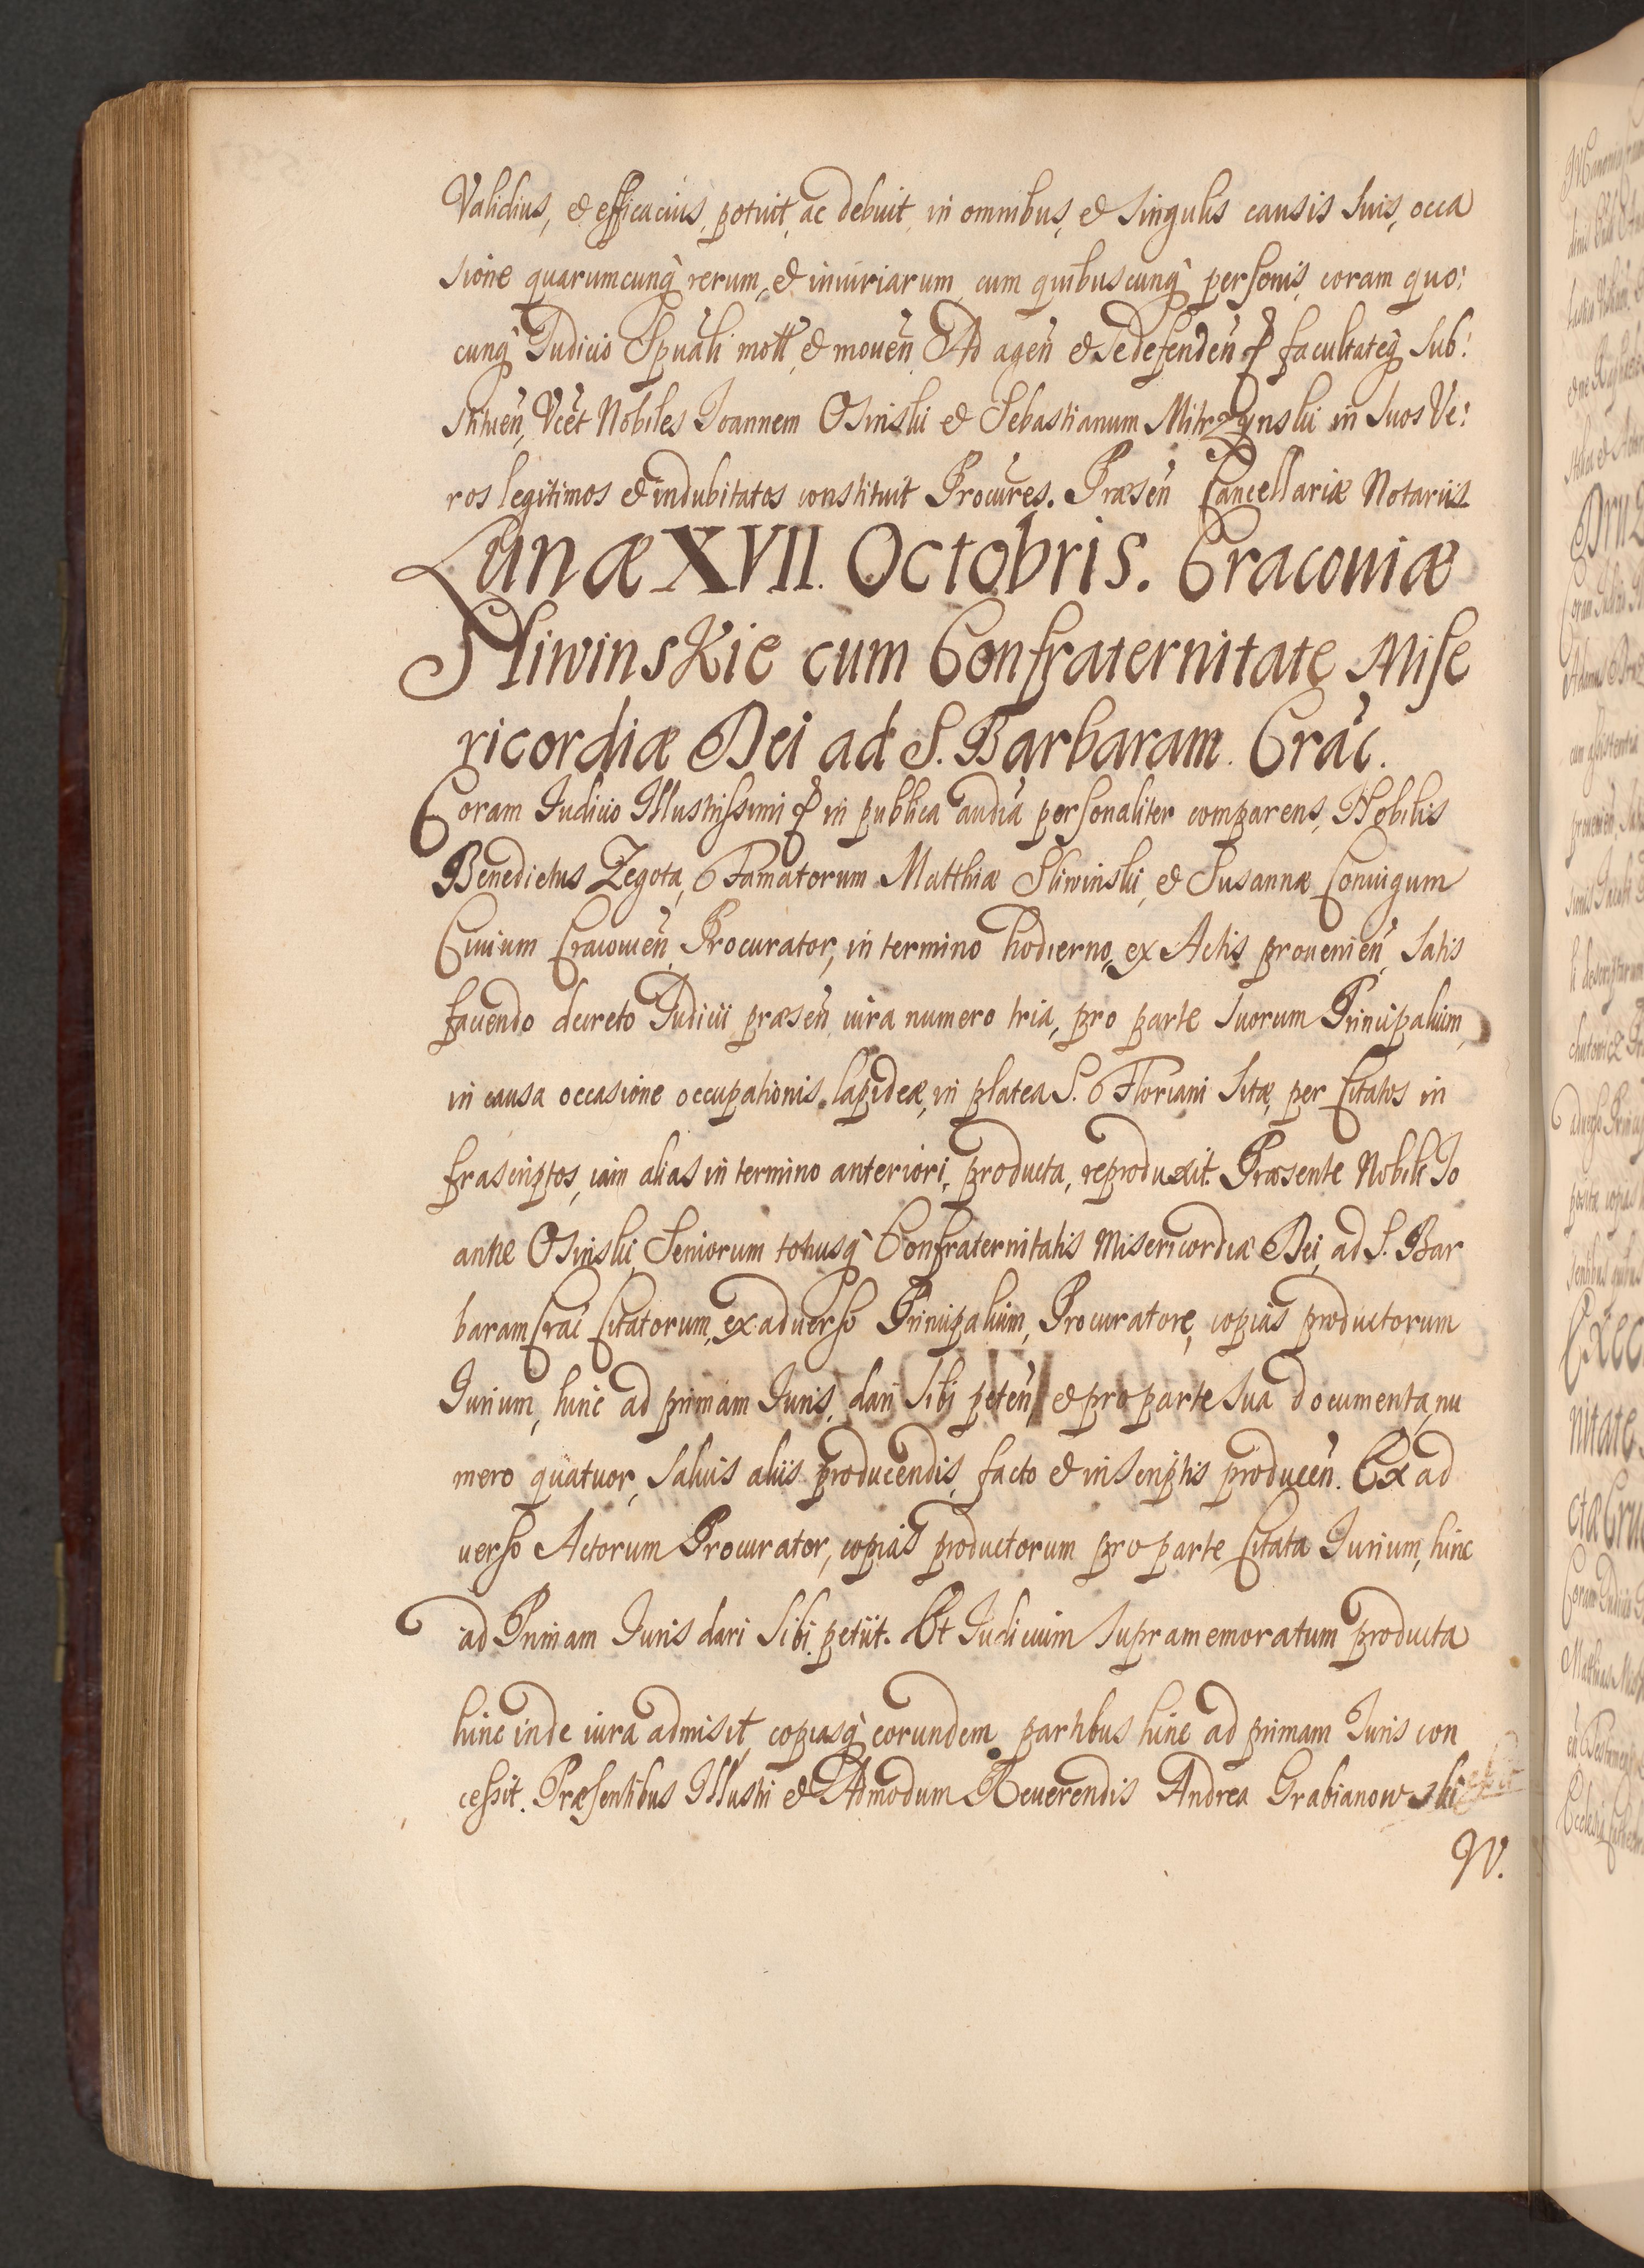 Validius, et efficacius, potuit, ac debuit, in omnibus, et singulis causis suis, occa
sione quarumcunq̀ rerum, et iniuriarum, cum quibuscunq̀ personis, coram quo:
cunq̀ Judicio Spuāli mott̃, et mouen̄, Ad agen̄ et se defenden̄ facultateq̀ sub:
stituen̄, Vcēt Nobiles Joannem Osinski et Sebastianum Mitrzynski in suos Ve:
ros legitimos et indubitatos constituit Procures. Præsen̄ Cancellariæ Notariis
Lunæ XVII. Octobris. Cracouiæ
Sliwinskie cum Confraternitate Mise
ricordiæ Dei ad S. Barbaram. Crac̄.
Coram Judicio Illustrissimi in publica audīa personaliter comparens, Nobilis
Benedictus Zegota, Famatorum Matthiæ Sliwinski, et Susannæ Coniugum
Ciuium Cracouien̄, Procurator, in termino hodierno, ex Actis prouenien̄, satis
faciendo decreto Judicii præsen̄ iura numero tria, pro parte suorum Principalium,
in causa occasione occupationis lapideæ, in platea S. Floriani sitæ, per Citatos in
frascriptos, iam alias in termino anteriori, producta, reproduxit. Præsente Nobili Jo
anne Osinski, Seniorum totiusq̀ Confraternitatis Misericordiæ Dei, ad S. Bar
baram Crac̄ Citatorum, ex aduerso Principalium, Procuratore, copias productorum
Jurium, hinc ad primam Juris, dari sibi peten̄, et pro parte sua documenta, nu
mero quatuor, saluis aliis producendis, facto et in scriptis producen̄. Ex ad
uerso Actorum Procurator, copias productorum pro parte Citata Jurium, hinc
ad Primam Juris dari sibi petiit. Et Judicium supramemoratum producta
hinc inde iura admisit, copiasq̀ eorundem partibus hinc ad primam Juris con
cessit. Præsentibus Illustri et Admodum Reuerendis Andrea Grabianowski